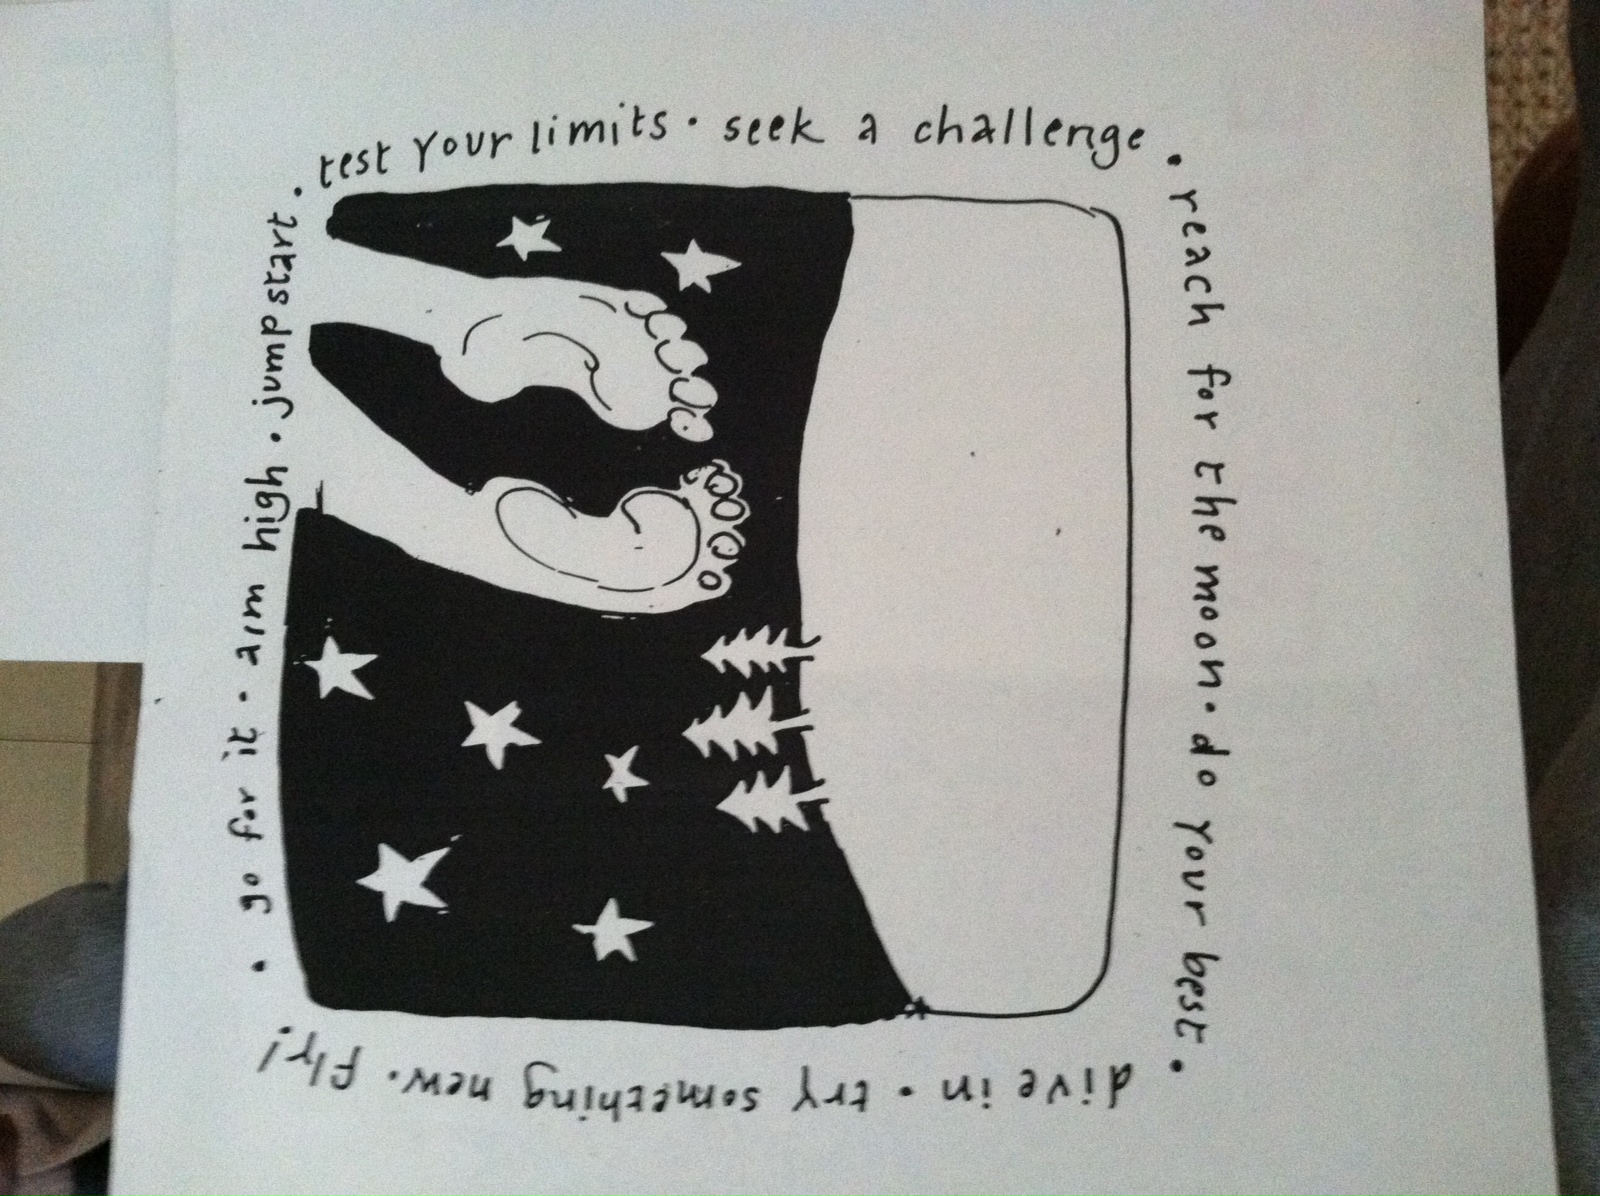 • go for it • aim high • jumpstart •
test your limits • seek a challenge
• reach for the moon • do your best
• dive in • try something new. fly!